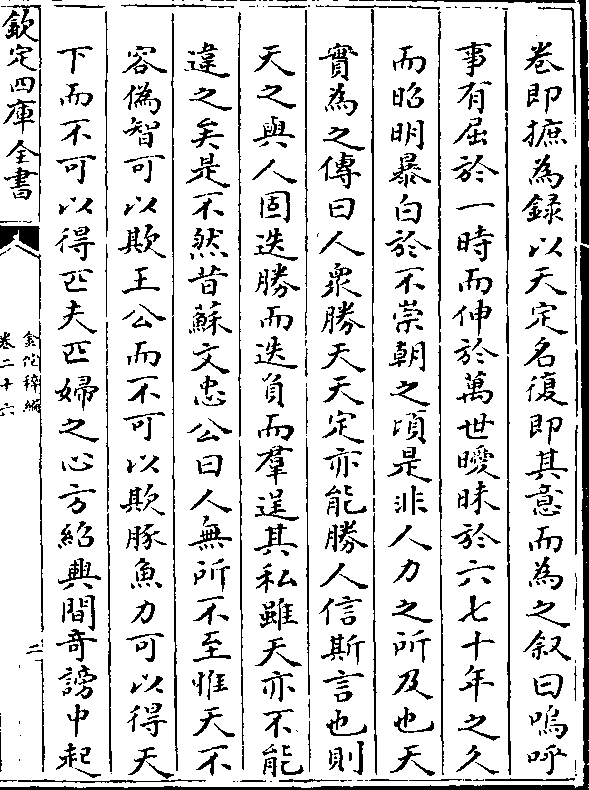 卷即摭為録以天定名復即其意而為之叙曰嗚呼
事有屈於一時而伸於萬世曖昧於六七十年之久
而昭明暴白於不崇朝之頃是非人力之所及也天
實為之傳曰人衆勝天天定亦能勝人信斯言也則
天之與人固迭勝而迭負而羣逞其私雖天亦不能
違之矣是不然昔蘇文忠公曰人無所不至惟天不
容偽智可以欺王公而不可以欺豚魚力可以得天
下而不可以得匹夫匹婦之心方紹興間奇謗中起
欽定四庫全書
金佗稡編
卷二十六
二